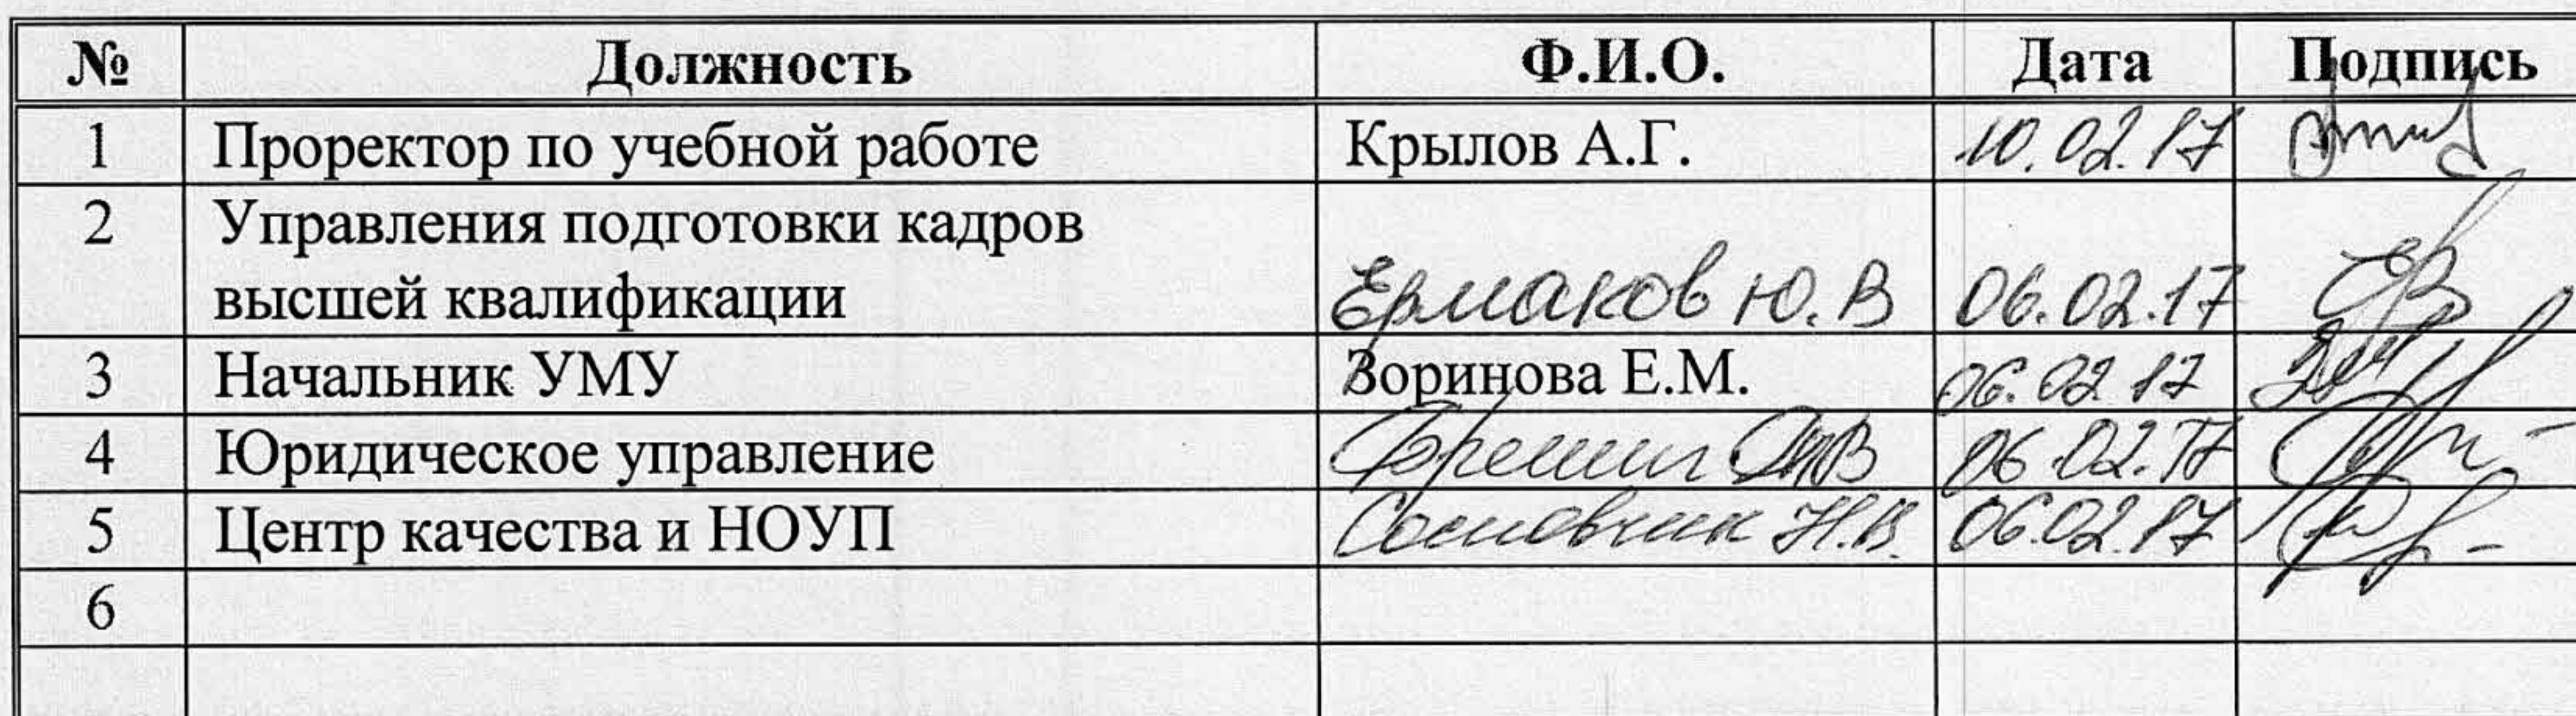 № Должность Ф.И.О. Дата Подпись
1 Проректор по учебной работе Крылов А.Г. 10.02.17
2 Управления подготовки кадров
высшей квалификации Ермаков Ю.В 06.02.17
3 Начальник УМУ Зоринова Е.М. 06.02.17
4 Юридическое управление 06.02.17
5 Центр качества и НОУП Н.В. 06.02.17
6